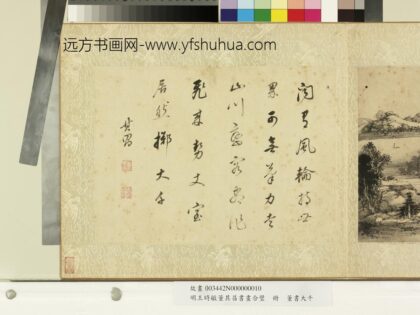 远方书画网-www.yfshuhua.com
聞有風輪持世
界可無筆力走
山川巒容盡作
飛來勢丈室
居然擲大千
其昌
故畫 003442N000000010
明王時敏董其昌書畫合璧 冊 董書大千